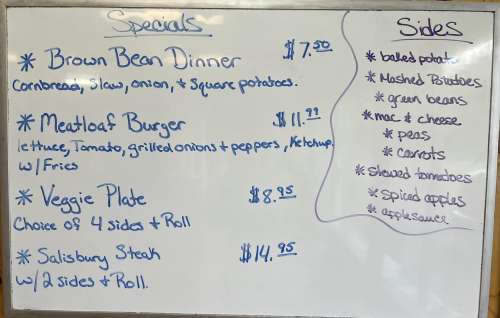 Specials
* Brown Bean Dinner $7.50
Cornbread, Slaw, onion, + Square potatoes.
* Meatloaf Burger $11.99
lettuce, Tomato, grilled onions + peppers, Ketchup.
w/ Fries
* Veggie Plate $8.95
Choice of 4 sides + Roll
* Salisbury Steak $14.95
w/ 2 sides + Roll.
Sides
* baked potato
* Mashed Potatoes
* green beans
* mac & cheese
* peas
* carrots
* Stewed tomatoes
* Spiced apples
* applesauce